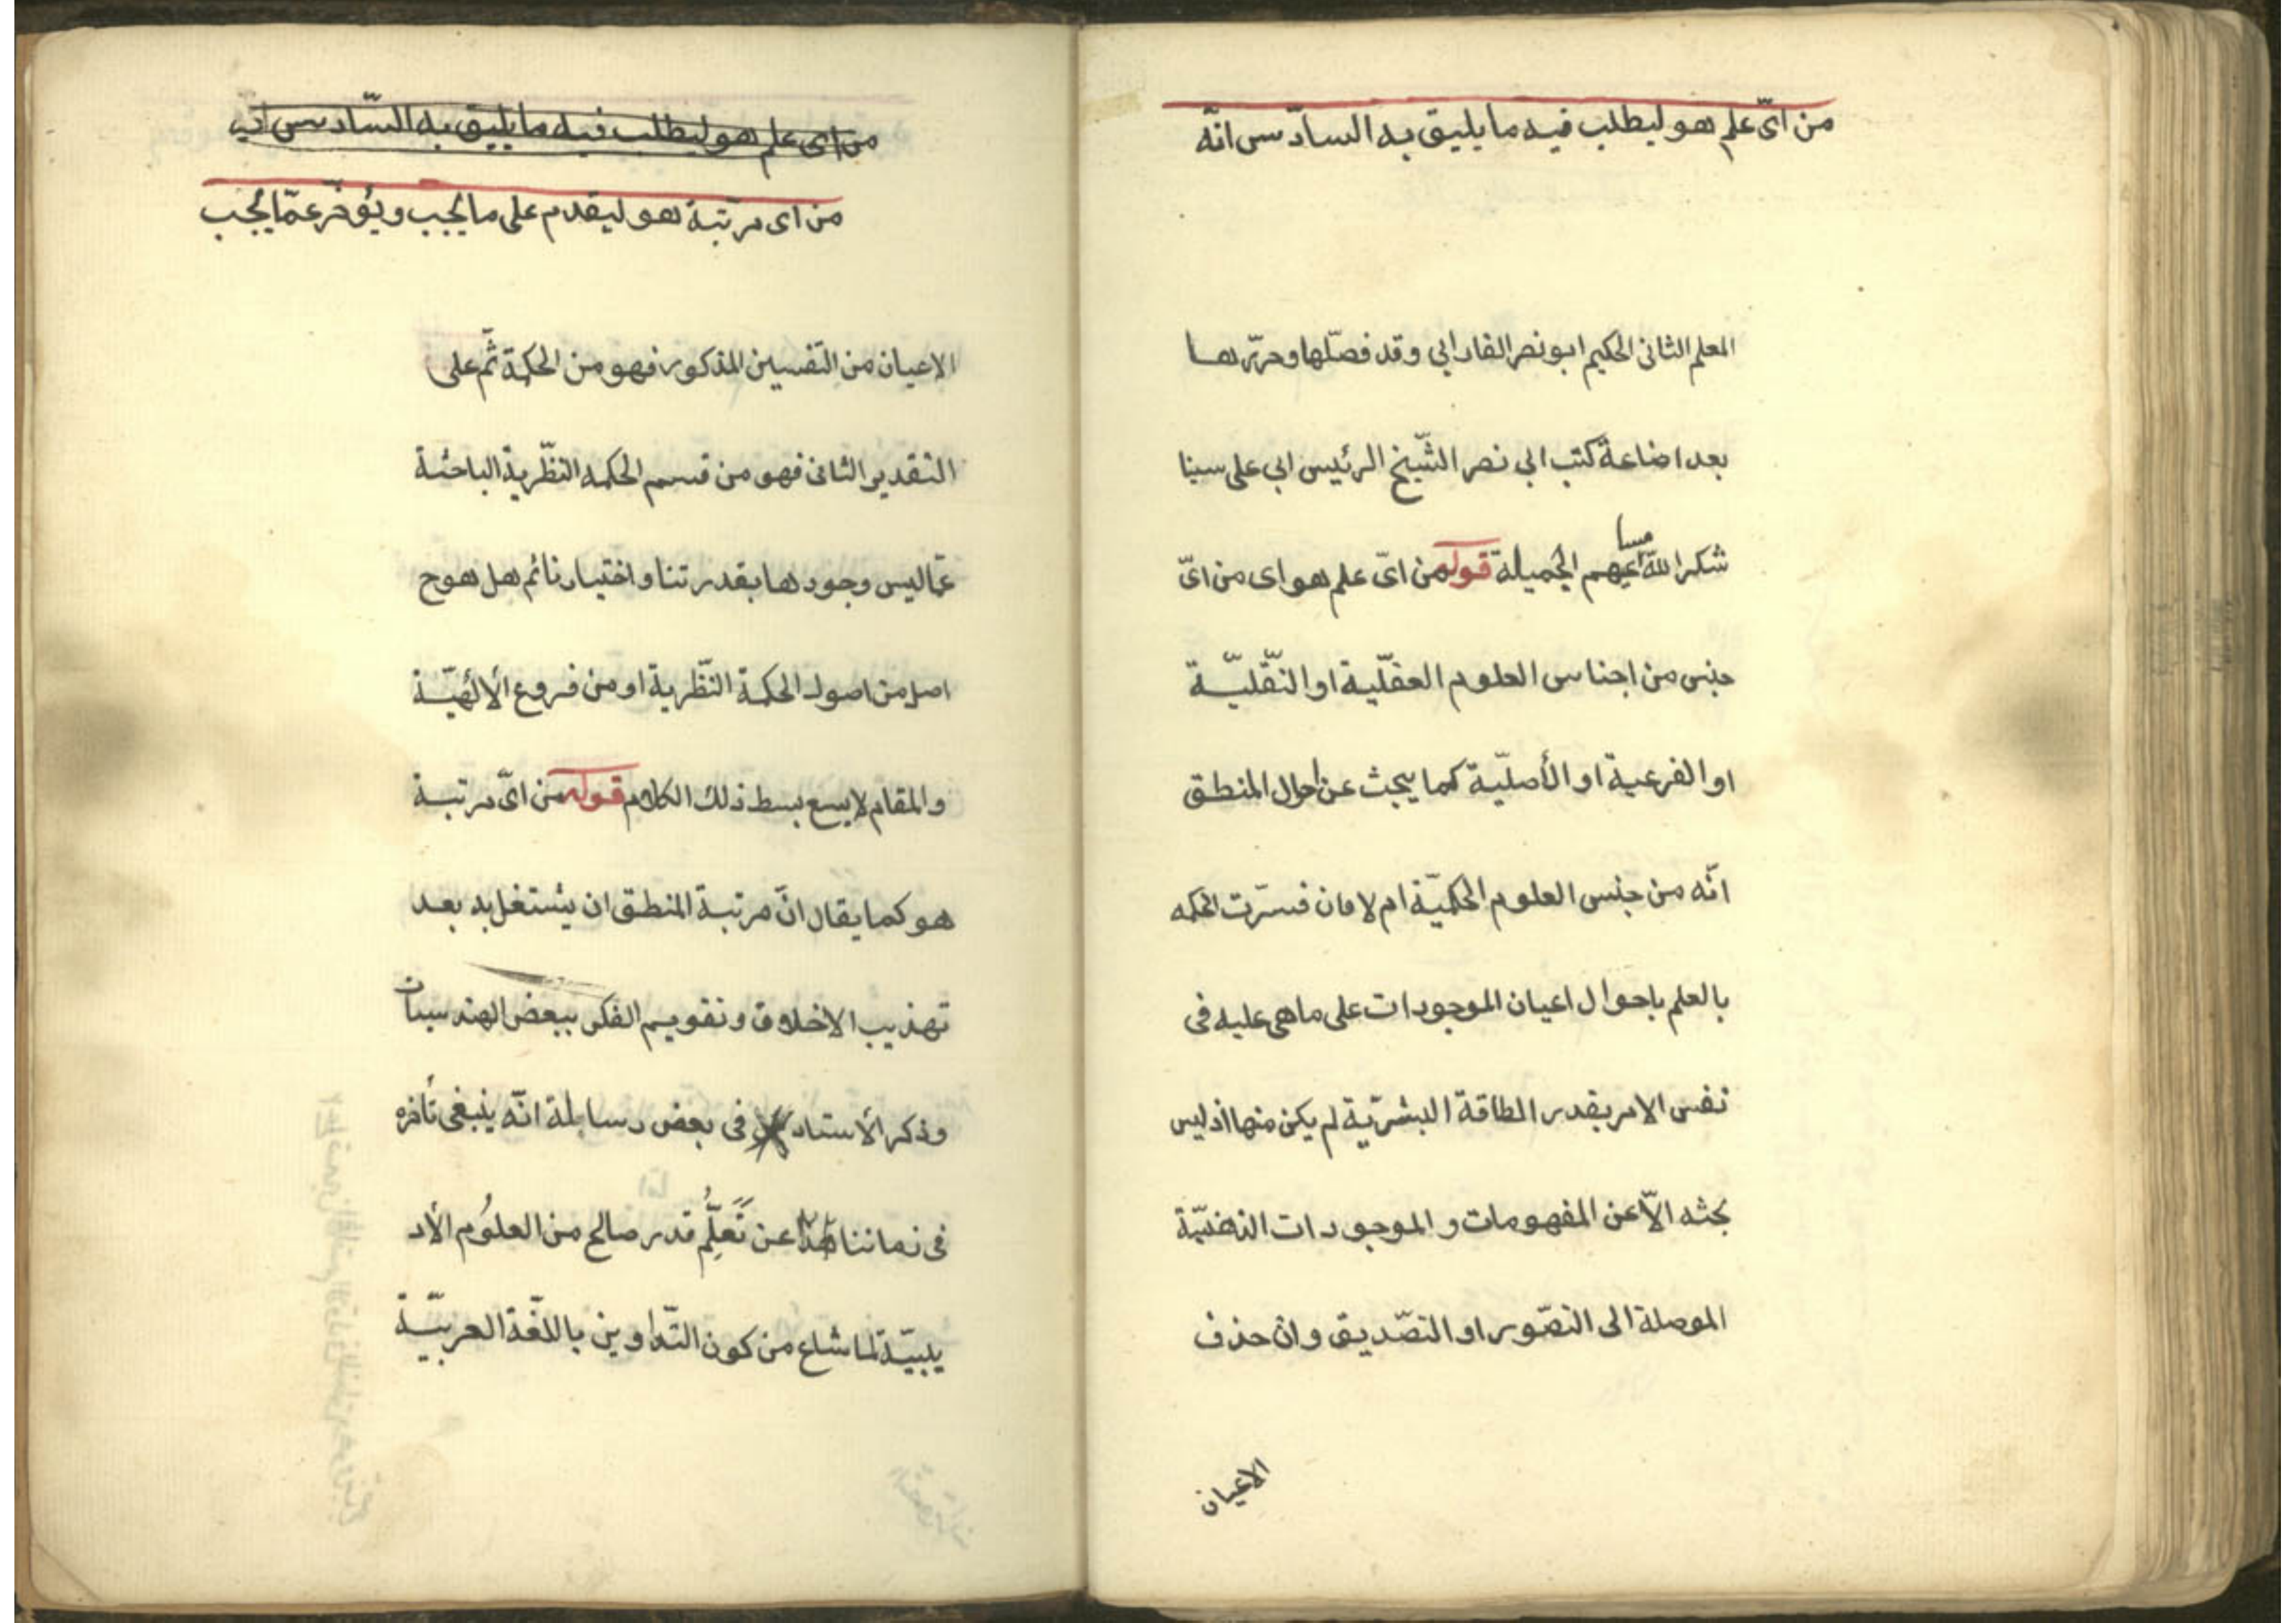 من اىّ علم هو ليطلب فيه ما يليق به السادس انّه
المعلم الثانى الحكيم ابو نصر الفارابي وقد فصّلها وحرّرها
بعد اضاعة كتب ابي نصر الشّيخ الرئيس ابي على سينا
شكر الله مساعيهم الجميلة قوله من اىّ علم هو اى من اىّ
جنس من اجناس العلوم العقّلية او النّقليّة
او الفرعية او الأصليّة كما يبحث عن احوال المنطق
انّه من جنس العلوم الحكميّة ام لا فان فسّرت الحكمه
بالعلم باحوال اعيان الموجودات على ما هى عليه فى
نفس الامر بقدر الطاقة البشريّة لم يكن منها اذ ليس
بحثه الاّ عن المفهومات و الموجودات الذهنيّة
الموصلة الى التصّور او التصّديق وان حذف
الاعيان
من اى علم هو ليطلب فيه ما يليق به السّادس انّه
من اى مرتبة هو ليقدم على ما يجب ويؤخّر عمّا يجب
الاعيان من التّفسير المذكور فهو من الحكمة ثمّ على
التقدير الثانى فهو من قسم الحكمه النظّرية الباحثة
عمّا ليس وجودها بقدرتنا واختيارنا ثم هل هو ح
اصل من اصول الحكمة النّظرية او من فروع الألٰهيّة
والمقام لا يسع بسط ذلك الكلام قوله من اىّ مرتبة
هو كما يقال انّ مرتبة المنطق ان يشتغل به بعد
تهذيب الاخلاق وتقويم الفكر ببعض الهندسيات
وذكر الأستاد فى بعض رسائله انّه ينبغى تأخره
فى زماننا هذا عن تَعَلُّم قدر صالح من العلُوم الأد
يبيّة لما شاع من كون التّداوين باللغّة العربيّة